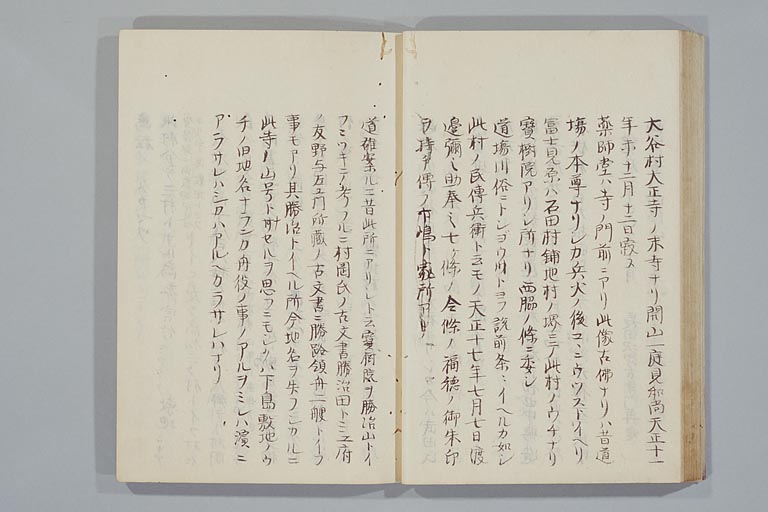 大谷村大正寺ノ末寺ナリ開山一庭見和尚天正十一
年未十二月十二日寂ス
薬師堂ハ寺ノ門前ニアリ此像古佛ナリハ昔道
場ノ本尊ナリシカ兵火ノ後コヽニウツストイヘリ
冨士見原ハ石田村鋪地村ノ堺ニテ此村ノウチナリ
寳樹院アリシ所ナリ西脇ノ條ニ委シ
道場川俗ニトシヨウ川トヨフ説前条ニイヘルカ如シ
此村ノ民傳兵衛ト云モノ天正十七年七月七日渡
邉彌之助奉ミ七ヶ條ノ令條ノ福徳ノ御朱印
ヲ持
道雄案ルニ昔此所ニアリシト云寳樹院ヲ勝沼山トイ
フニツキテ考フルニ村岡氏ノ古文書勝沼田トミエ府
ノ友野与左エ門所蔵ノ古文書ニ勝路領舟二艘トイフ
事モアリ其勝沼トイヘル所今地名ヲ失フシカルニ
此寺ノ山号ト セルヲ思フニモシクハ下島敷地ノウ
チノ旧地名ナランカ舟役ノ事ノアルヲミレハ濱ニ
アラサレハシカハアルヘカラサレハナリ